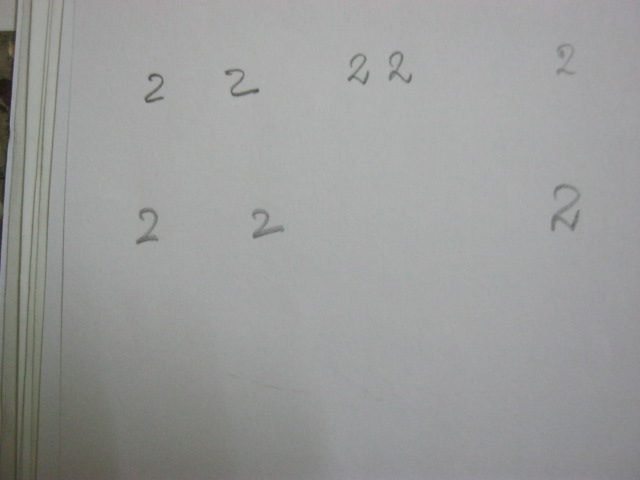 2 2 2 2 2
2 2 2